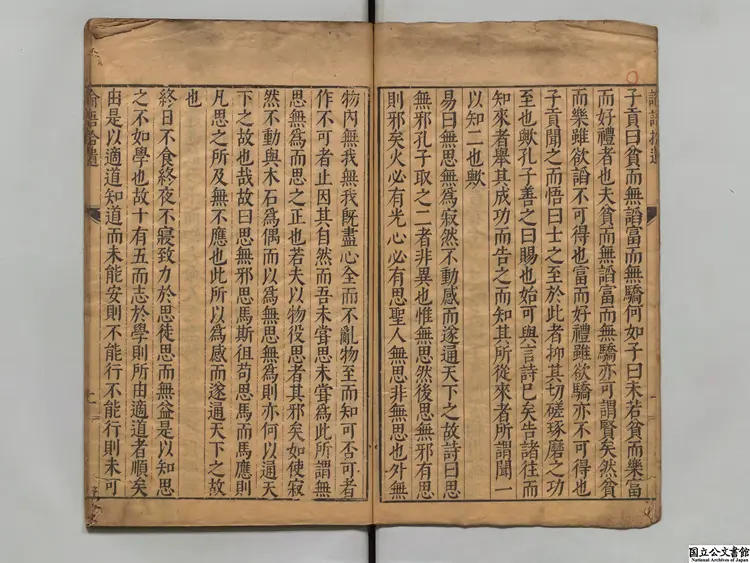 論語拾遺
子貢曰貧而無謟富而無驕何如子曰未若貧而樂富
而好禮者也夫貧而無謟富而無驕亦可謂賢矣然貧
而樂雖欲謟不可得也富而好禮雖欲驕亦不可得也
子貢聞之而悟曰士之至於此者抑其切磋琢磨之功
至也歟孔子善之曰賜也始可與言詩已矣告諸往而
知來者舉其成功而告之而知其所從來者所謂聞一
以知二也歟
易曰無思無爲寂然不動感而遂通天下之故詩曰思
無邪孔子取之二者非異也惟無思然後思無邪有思
則邪矣火必有光心必有思聖人無思非無思也外無
物內無我無我既盡心全而不亂物至而知可否可者
作不可者止因其自然而吾未甞思未甞爲此所謂無
思無爲而思之正也若夫以物役思者其邪矣如使寂
然不動與木石爲偶而以爲無思無爲則亦何以通天
下之故也哉故曰思無邪思馬斯徂苟思馬而馬應則
凡思之所及無不應也此所以爲感而遂通天下之故
也
終日不食終夜不寢致力於思徒思而無益是以知思
之不如學也故十有五而志於學則所由適道者順矣
由是以適道知道而未能安則不能行不能行則未可
論語拾遺
国立公文書館
National Archives of Japan